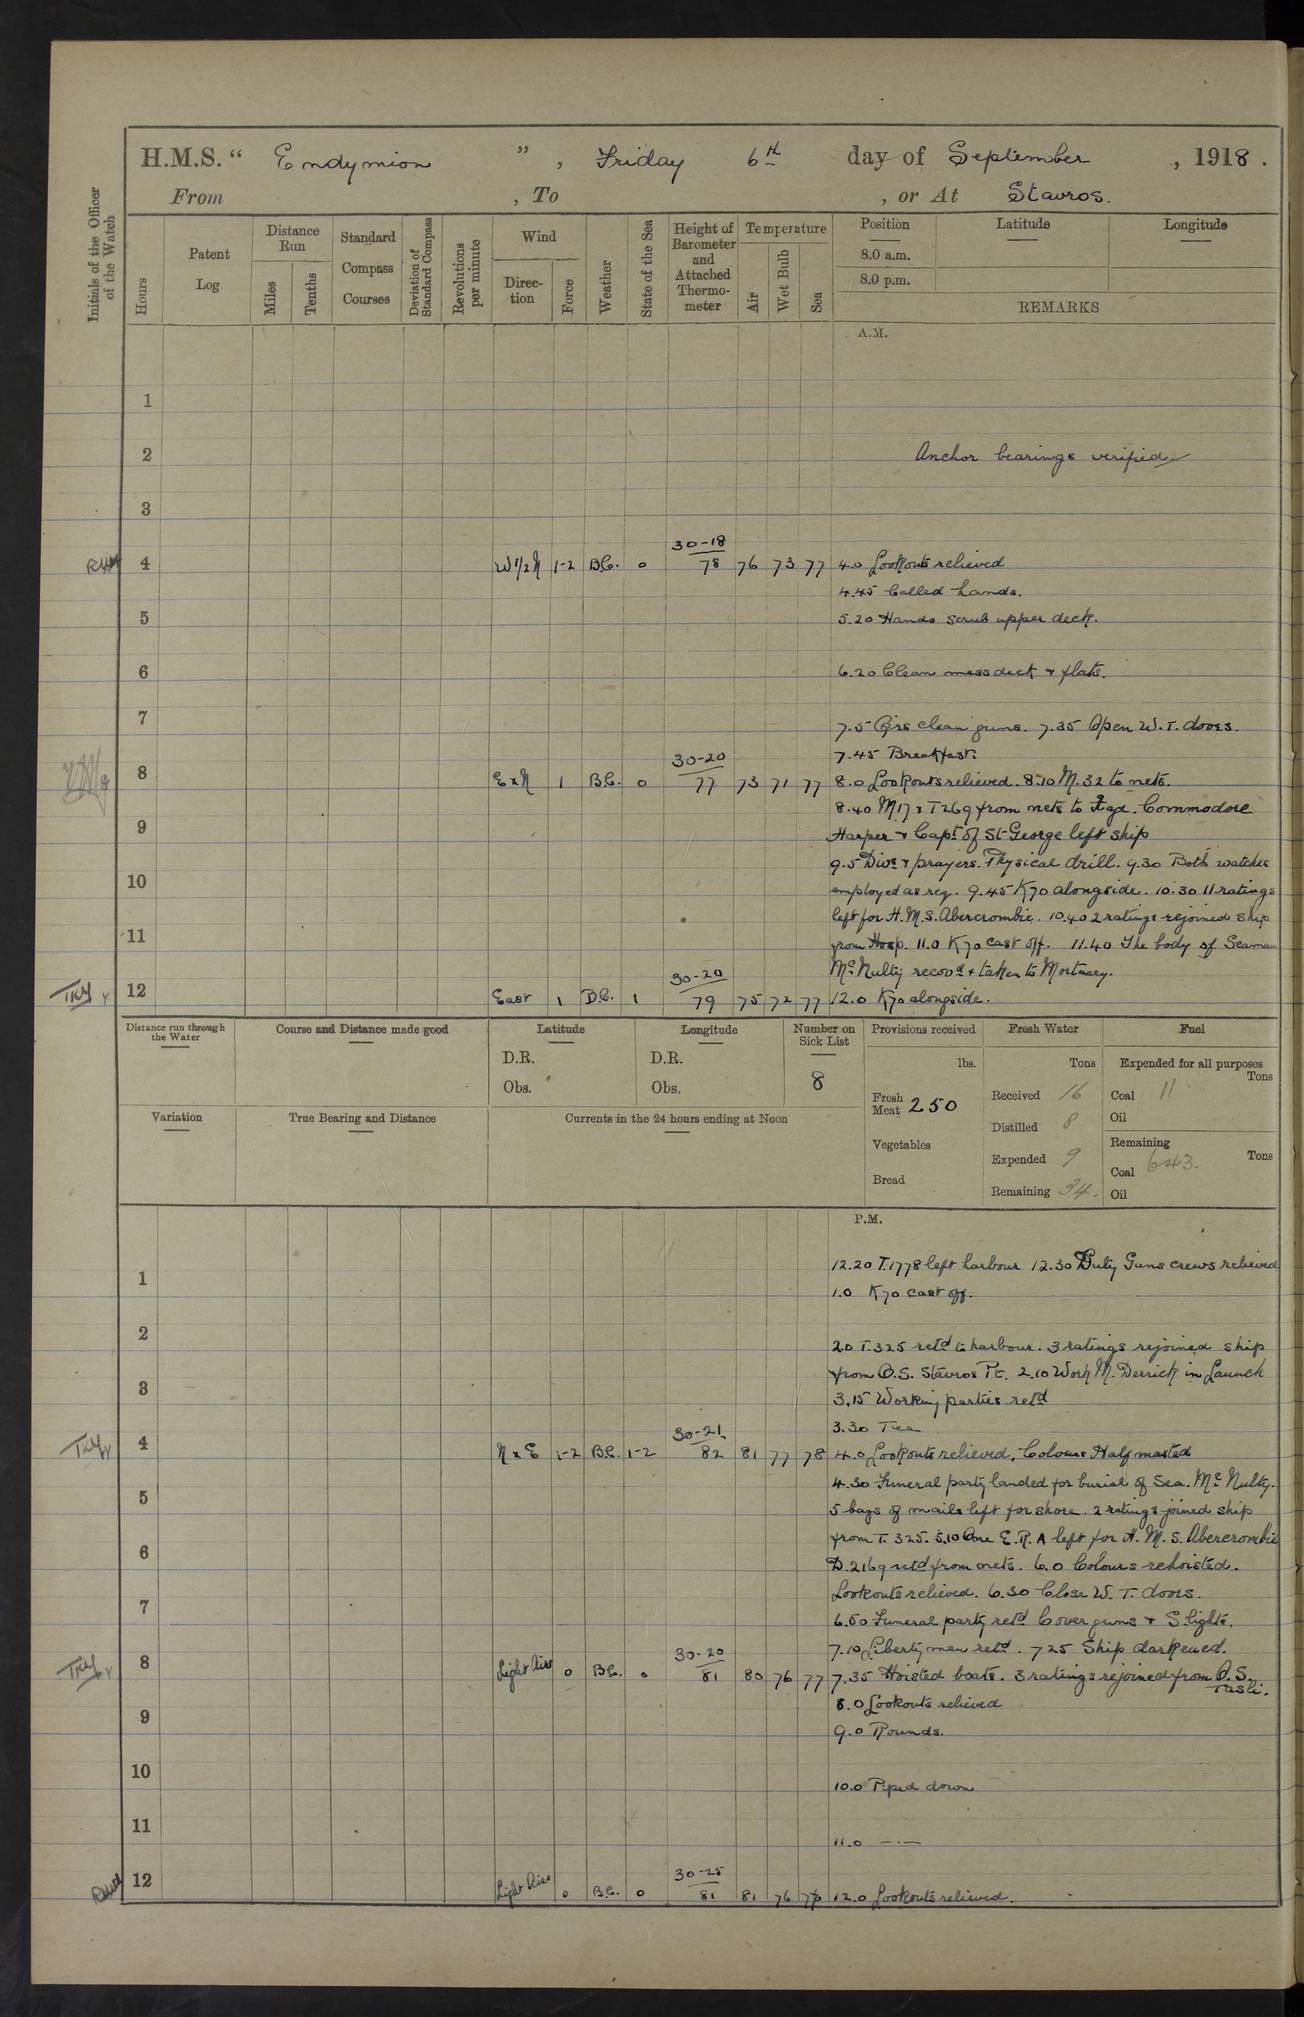 H.M.S. “ Endymion ” , Friday 6th day of September , 1918 .
From , To , or At Stavros.
Initials of the Officer of the Watch
Hours
Patent Log
Distance Run
Miles
Tenths
Standard Compass Courses
Deviation of Standard Compass
Revolutions per minute
Wind
Direction
Force
Weather
State of the Sea
Height of Barometer and Attached Thermometer
Temperature
Air
Wet Bulb
Sea
Position
Latitude
Longitude
8.0 a.m.
8.0 p.m.
REMARKS
A.M.
1
2 Anchor bearings verified
3
30-18
4 W1/2N 1-2 B.C. 0 78 76 73 77 4.0 Lookouts relieved
4.45 Called hands.
5 5.20 Hands scrub upper deck.
6 6.20 Clean messdeck & flats.
7 7.5 Qrs clean guns. 7.35 Open W.T. doors.
30-20 7.45 Breakfast.
8 ExN 1 B.C. 0 77 73 71 77 8.0 Lookouts relieved. 8.10 M.32 to nets.
8.40 M17 & T269 from nets to . Commodore
9 Harper & Capt of St George left ship
9.5 Divs & prayers. Physical drill. 9.30 Both watches
10 employed as req. 9.45 K70 alongside. 10.30 11 ratings
left for H.M.S. Abercrombie. 10.40 2 ratings rejoined ship
11 from Hosp. 11.0 K70 cast off. 11.40 The body of Seaman
30-20 McNulty recovd & taken to Mortuary.
12 East 1 B.C. 1 79 75 72 77 12.0 K70 alongside.
Distance run through the Water
Course and Distance made good
Latitude
D.R.
Obs.
Longitude
D.R.
Obs.
Number on Sick List
8
Provisions received
lbs.
Fresh Meat 250
Vegetables
Bread
Fresh Water
Tons
Received 16
Distilled 8
Expended 9
Remaining 34.
Fuel
Expended for all purposes
Tons
Coal 11
Oil
Remaining
Tons
Coal 643.
Oil
Variation
True Bearing and Distance
Currents in the 24 hours ending at Noon
P.M.
12.20 T.1778 left harbour 12.30 Duty Guns crews relieved
1 1.0 K70 cast off.
2 2.0 T.325 retd to harbour. 3 ratings rejoined ship
from O.S. Stavros Pt. 2.10 Work M. Derrick in Launch
3 3.15 Working parties retd
30-21 3.30 Tea
4 NxE 1-2 B.C. 1-2 82 81 77 78 4.0 Lookouts relieved. Colours Half masted
4.30 Funeral party landed for burial of Sea. McNulty.
5 5 bags of mails left for shore. 2 ratings joined ship
from T. 325. 5.10 One E.R.A left for H.M.S. Abercrombie
6 D.2169 retd from nets. 6.0 Colours rehoisted.
Lookouts relieved. 6.30 Close W.T. doors.
7 6.50 Funeral party retd Cover guns & S. lights.
30-20 7.10 Liberty men retd. 7 25 Ship darkened.
8 Light Airs 0 B.C. 0 81 80 76 77 7.35 Hoisted boats. 3 ratings rejoined from O.S.
Tasli.
8.0 Lookouts relieved
9 9.0 Rounds.
10 10.0 Piped down
11 11.0 —·—
30-25
12 Light Airs 0 B.C. 0 81 81 76 76 12.0 Lookouts relieved.